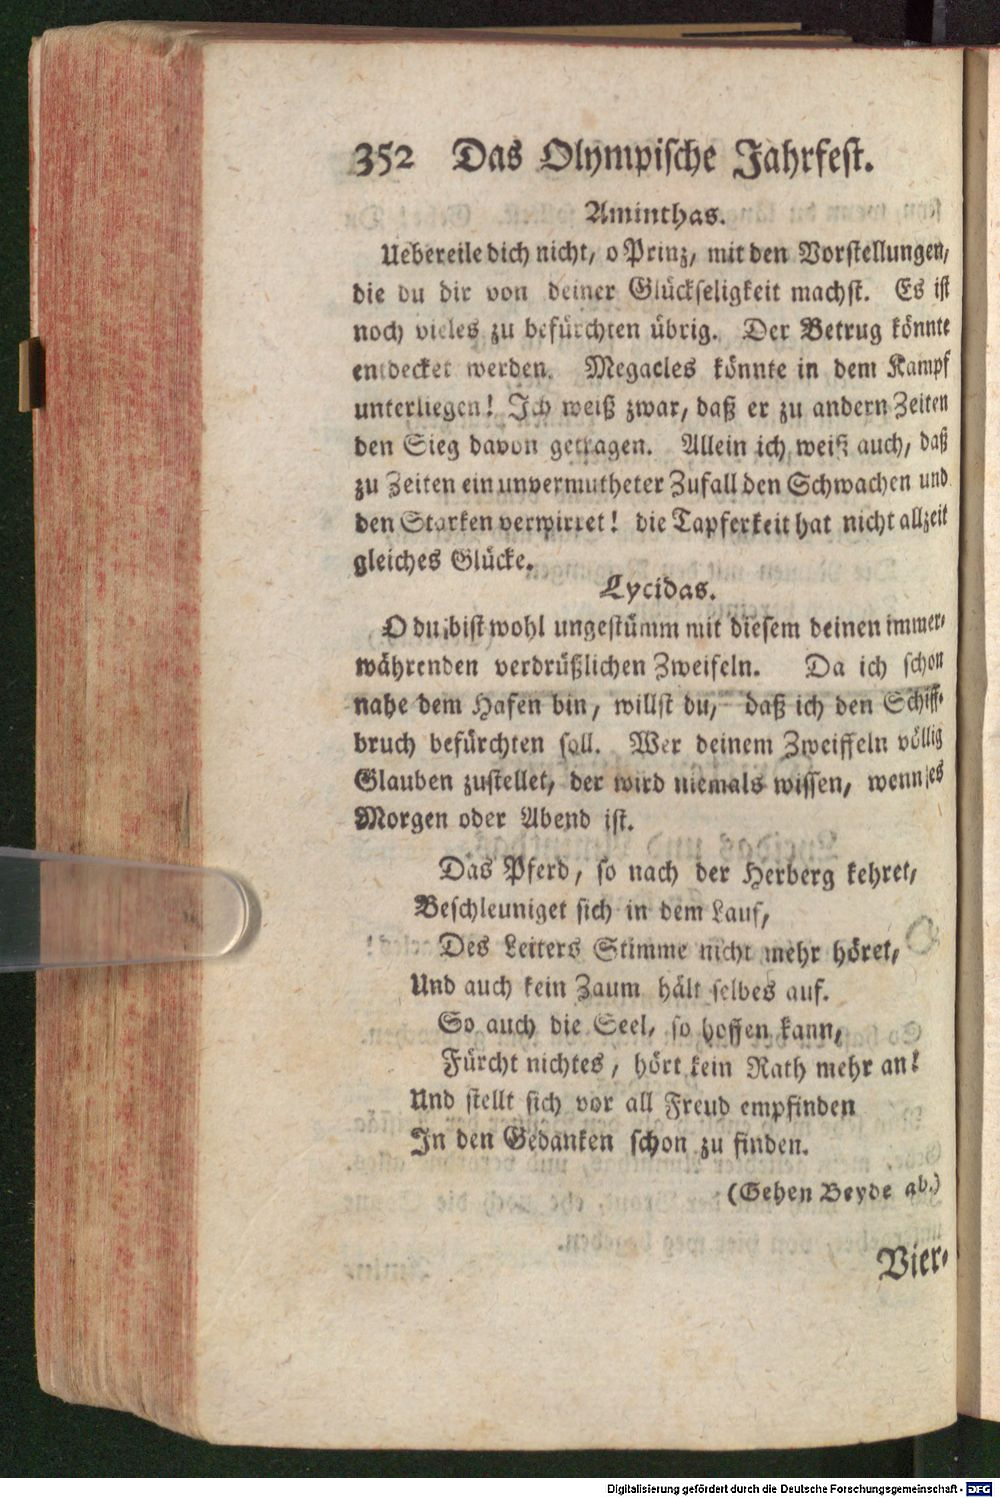 352 Das Olympische Jahrfest.
Aminthas.
Uebereile dich nicht, o Prinz, mit den Vorstellungen,
die du dir von deiner Glückseligkeit machst. Es ist
noch vieles zu befürchten übrig. Der Betrug könnte
entdecket werden. Megacles könnte in dem Kampf
unterliegen! Ich weiß zwar, daß er zu andern Zeiten
den Sieg davon getragen. Allein ich weiß auch, daß
zu Zeiten ein unvermutheter Zufall den Schwachen und
den Starken verwirret! die Tapferkeit hat nicht allzeit
gleiches Glücke.
Lycidas.
O du bist wohl ungestümm mit diesem deinen immer-
währenden verdrüßlichen Zweifeln. Da ich schon
nahe dem Hafen bin, willst du, daß ich den Schiff-
bruch befürchten soll. Wer deinem Zweiffeln völlig
Glauben zustellet, der wird niemals wissen, wenn es
Morgen oder Abend ist.
Das Pferd, so nach der Herberg kehret,
Beschleuniget sich in dem Lauf,
Des Leiters Stimme nicht mehr höret,
Und auch kein Zaum hält selbes auf.
So auch die Seel, so hoffen kann,
Fürcht nichtes, hört kein Rath mehr an!
Und stellt sich vor all Freud empfinden
In den Gedanken schon zu finden.
(Gehen Beyde ab.)
Vier-
Digitalisierung gefördert durch die Deutsche Forschungsgemeinschaft - DFG